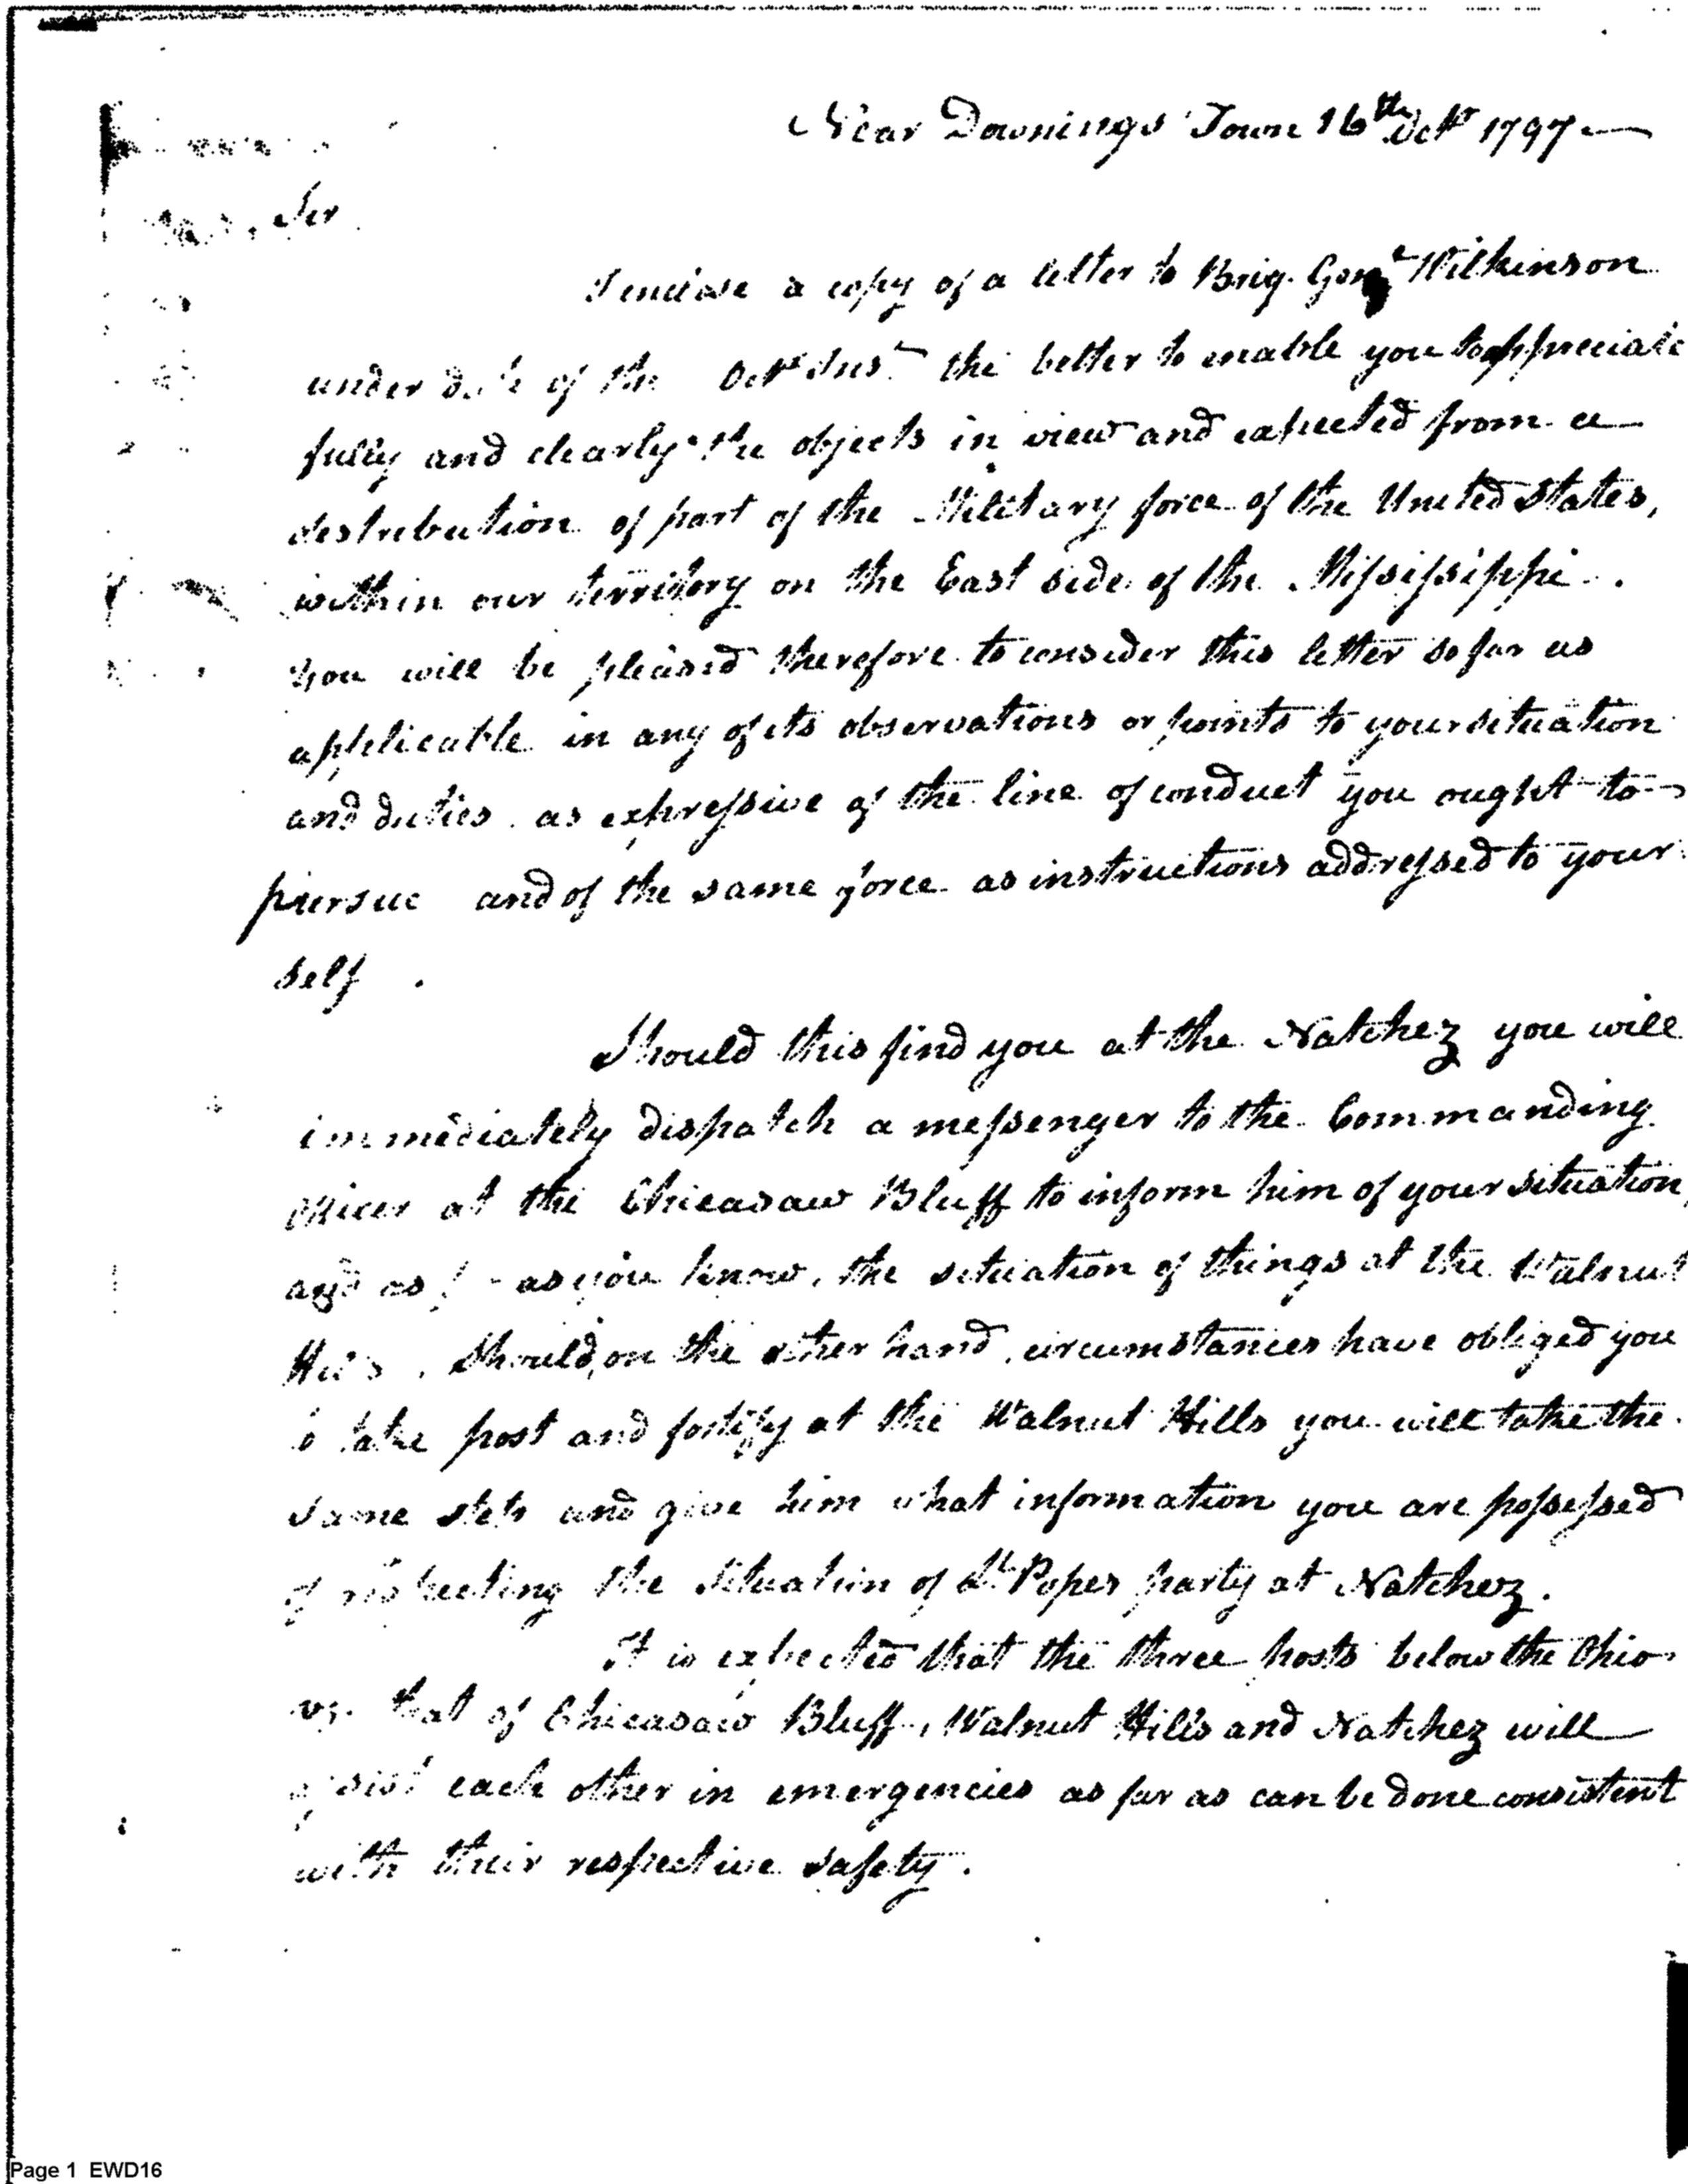 Near Downings Town 16th Octr 1797 —
Sir
I enclose a copy of a letter to Brig. Genl Wilkinson
under date of the Octr Inst the better to enable you to appreciate
fully and clearly the objects in view and expected from a
distribution of part of the Military force of the United States,
within our territory on the East side of the Missisippi.
You will be pleased therefore to consider this letter so far as
applicable in any of its observations or points to your situation
and duties as expressive of the line of conduct you ought to
pursue and of the same force as instructions addressed to your
self.
Should this find you at the Natchez you will
immediately dispatch a messenger to the Commanding
officer at the Chicasaw Bluff to inform him of your situation,
and as as you know, the situation of things at the Walnut
Hills. Should, on the other hand, circumstances have obliged you
to take post and fortify at the Walnut Hills you will take the
same step and give him what information you are possessed
of respecting the situation of Lt Popes party at Natchez.
It is expected that the three posts below the Ohio
vz. that of Chicasaw Bluff, Walnut Hills and Natchez will
assist each other in emergencies as far as can be done consistent
with their respective safety.
Page 1 EWD16